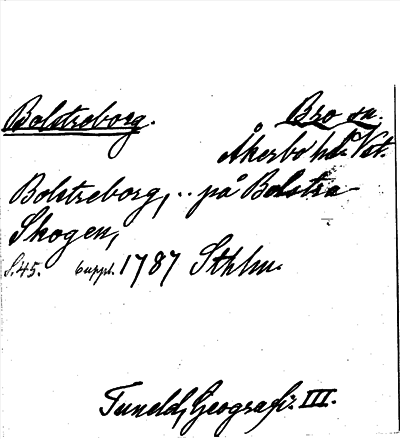 Bolstreborg. Bro sn.
Åkerbo hd. Vstm.
Bolstreborg, .. på Bolstra
Skogen,
S. 45. 6 uppl. 1787 Sthlm.
Tuneld, Geografi. III.